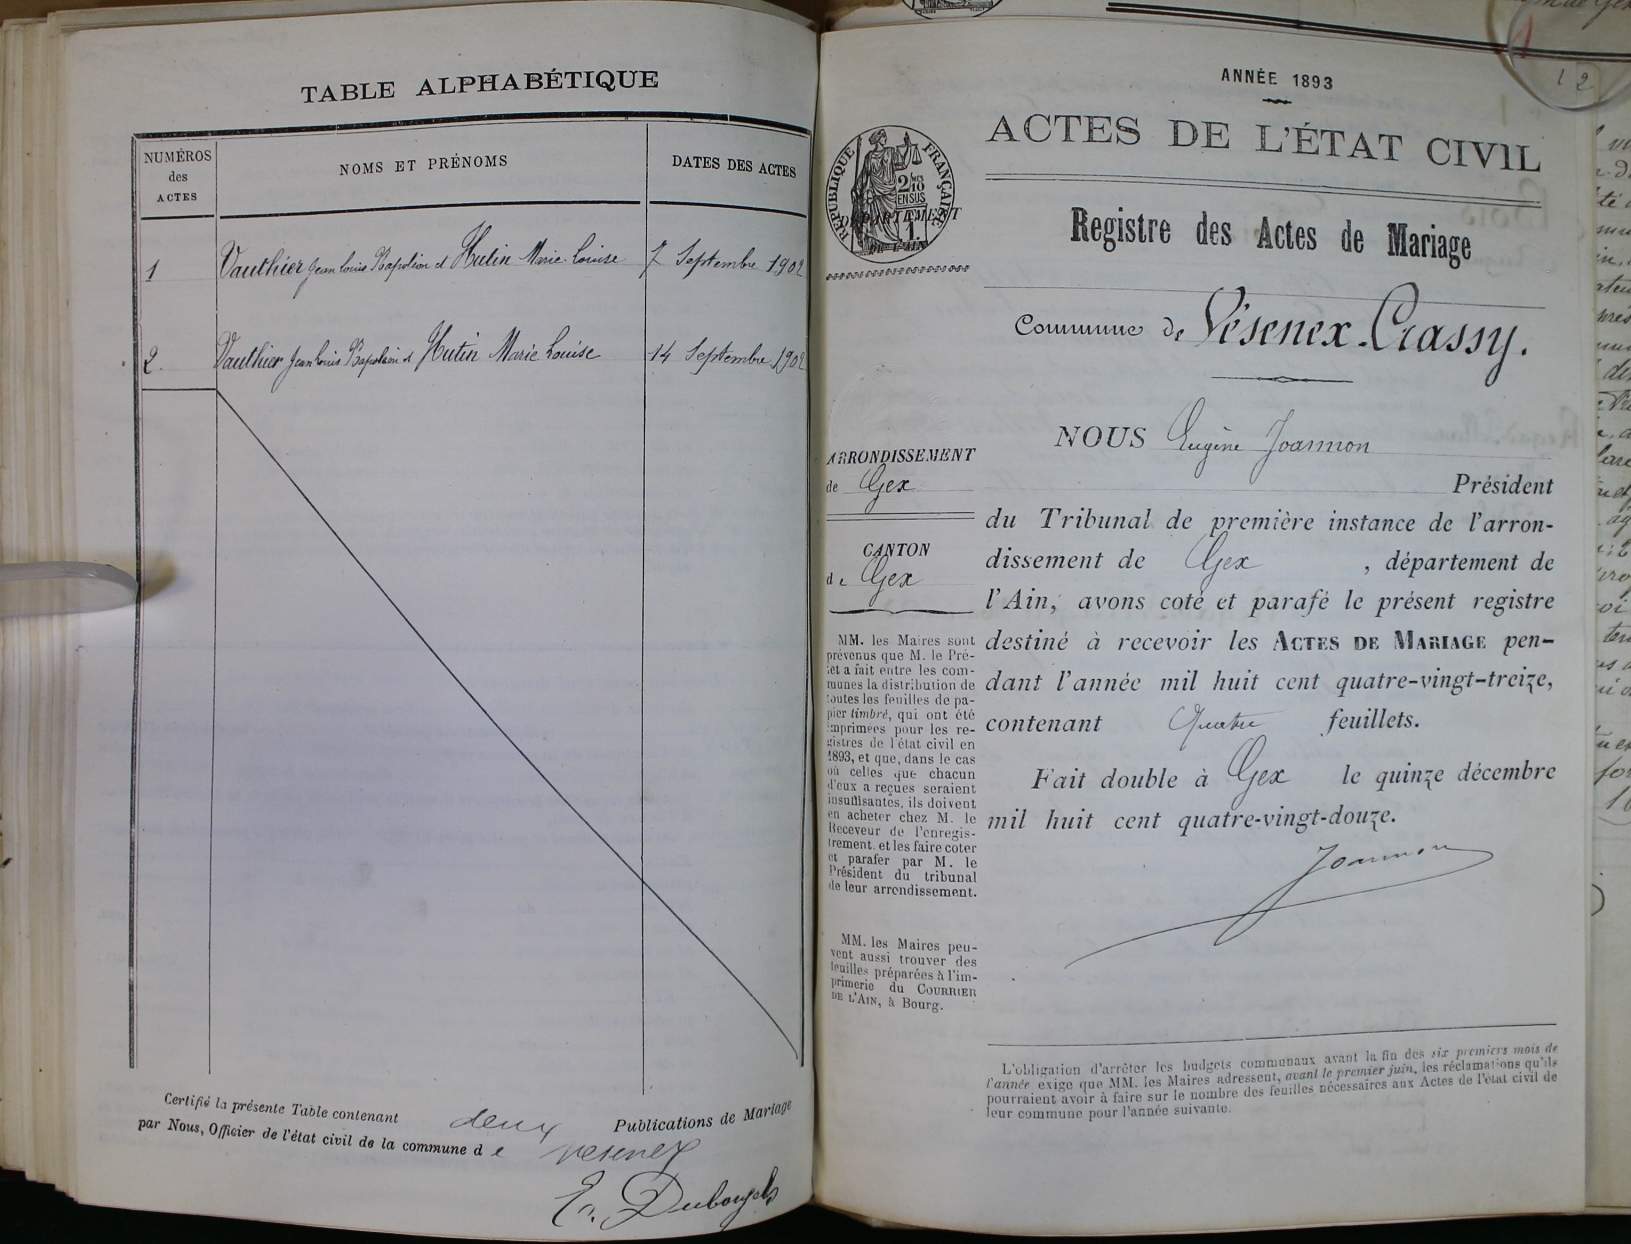 TABLE ALPHABÉTIQUE
NUMÉROS
des
ACTES
NOMS ET PRÉNOMS
DATES DES ACTES
1
Vauthier Jean Louis Napoléon et Hutin Marie Louise
7 Septembre 1902
2.
Vauthier Jean Louis Napoléon et Hutin Marie Louise
14 Septembre 1902
Certifié la présente Table contenant deux Publications de Mariage
par Nous, Officier de l'état civil de la commune de Vesenex
ANNÉE 1893
ACTES DE L'ÉTAT CIVIL
RÉPUBLIQUE FRANÇAISE
2/10
EN SUS
1
DÉPARTEMENT
DE L'AIN
Registre des Actes de Mariage
Commune de Vésenex-Crassy.
ARRONDISSEMENT
de Gex
CANTON
de Gex
MM. les Maires sont
prévenus que M. le Pré-
fet a fait entre les com-
munes la distribution de
toutes les feuilles de pa-
pier timbré, qui ont été
imprimées pour les re-
gistres de l'état civil en
1893, et que, dans le cas
où celles que chacun
d'eux a reçues seraient
insuffisantes, ils doivent
en acheter chez M. le
Receveur de l'enregis-
trement, et les faire coter
et parafer par M. le
Président du tribunal
de leur arrondissement.
MM. les Maires peu-
vent aussi trouver des
feuilles préparées à l'im-
primerie du COURRIER
DE L'AIN, à Bourg.
NOUS Eugène Joannon
Président
du Tribunal de première instance de l'arron-
dissement de Gex , département de
l'Ain, avons coté et parafé le présent registre
destiné à recevoir les ACTES DE MARIAGE pen-
dant l'année mil huit cent quatre-vingt-treize,
contenant Quatre feuillets.
Fait double à Gex le quinze décembre
mil huit cent quatre-vingt-douze.
Joannon
L'obligation d'arrêter les budgets communaux avant la fin des six premiers mois de
l'année exige que MM. les Maires adressent, avant le premier juin, les réclamations qu'ils
pourraient avoir à faire sur le nombre des feuilles nécessaires aux Actes de l'état civil de
leur commune pour l'année suivante.